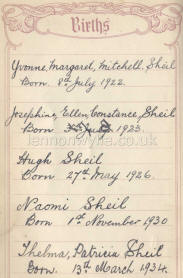 Births
Yvonne, Margaret, Mitchell. Sheil
Born 8th July 1922.
Josephine, Ellen, Constance, Sheil
Born 1923.
Hugh Sheil
Born 27th May 1926.
Naomi Sheil
Born 1st November 1930
Thelma, Patricia Sheil
Born. 13th March 1934.